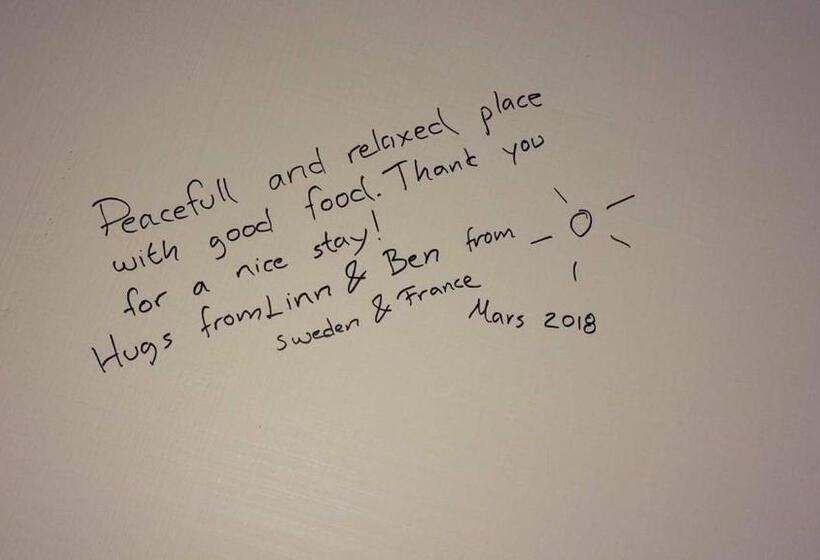 Peacefull and relaxed place
with good food. Thank you
for a nice stay!
Hugs from Linn & Ben from
Sweden & France
Mars 2018